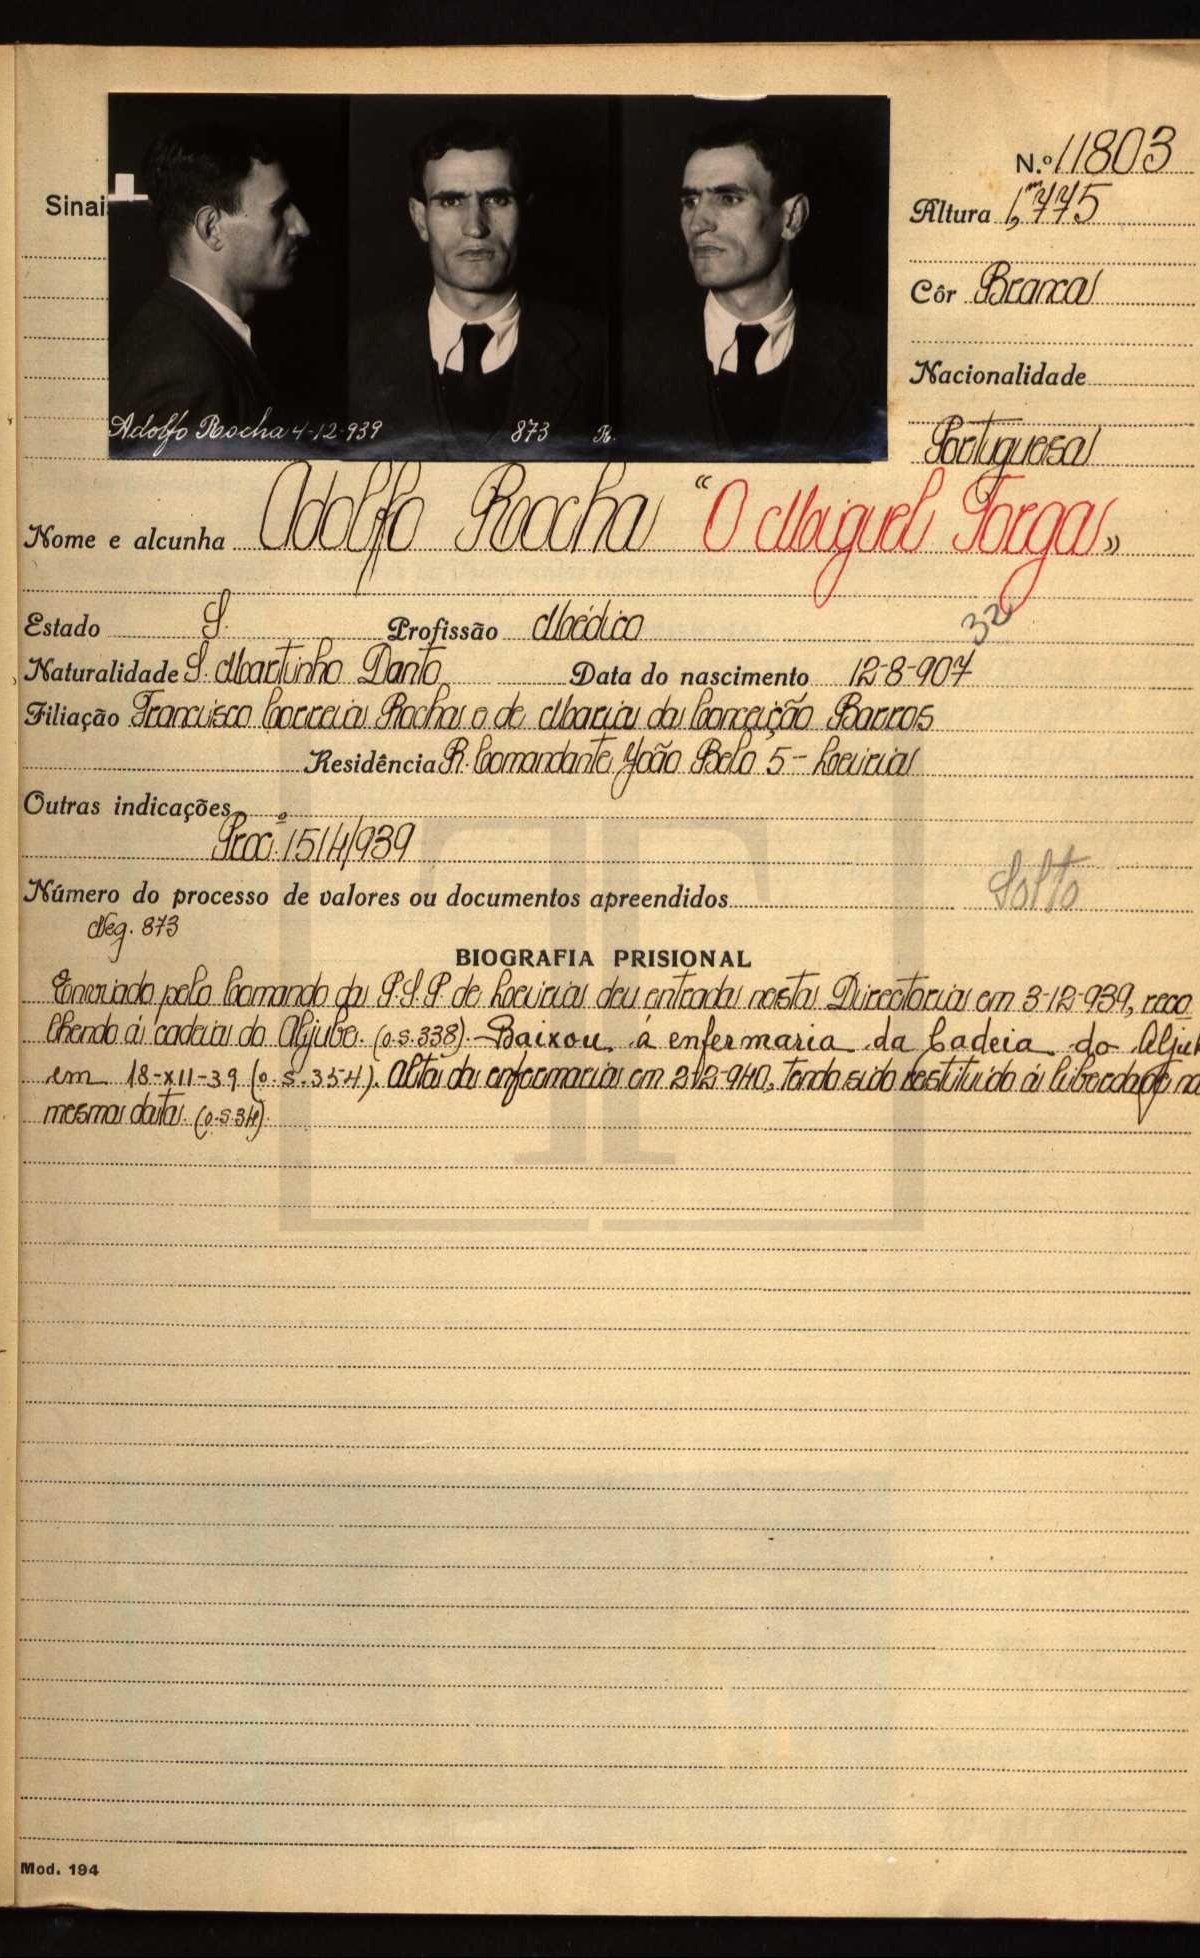 N.º 11803
Sinai
Altura 1,m775
Côr Branca
Nacionalidade
Portuguesa
Adolfo Rocha 4-12-939 873 R.
Nome e alcunha Adolfo Rocha "O Miguel Torga"
Estado S. Profissão Médico
32
Naturalidade S. Martinho Danto Data do nascimento 12-8-907
Filiação Francisco Correia Rocha e de Maria da Conceição Barros
Residência R. Comandante João Belo 5 - Leiria
Outras indicações
Proc.º 1514/939
Número do processo de valores ou documentos apreendidos Solto
Neg. 873
BIOGRAFIA PRISIONAL
Enviado pelo Comando da P.S.P. de Leiria deu entrada nesta Directoria em 3-12-939, reco
lhendo á cadeia do Aljube. (o.s.338). Baixou á enfermaria da Cadeia do Alju
em 18-XII-39 (o.s.354). Alta da enfermaria em 2-2-940, tendo sido restituido á liberdade na
mesma data. (o.s.34).
Mod. 194